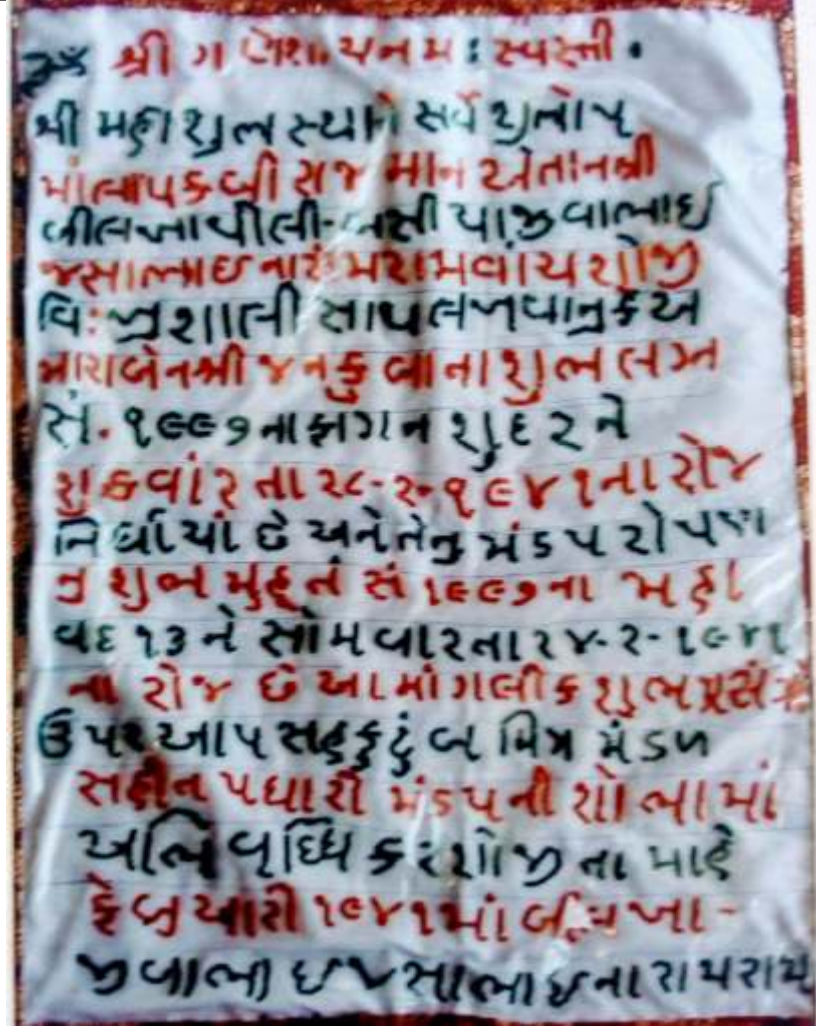 ૐ શ્રી ગણેશાયનમઃ સ્વસ્તી.
શ્રી મહાશુભસ્થાને સર્વે શુભોપ
માંલાપક બીરાજમાન અનેતાનશ્રી
બીલખાથીલી-
જસાભાઇના રામરામવાંચશોજી
વિઃખુશાલી સાથલખવાનુકેઅ
મારાબેનશ્રી જનકુબાના શુભ લગ્ન
સં. ૧૯૯૭ નાફાગન શુદ ૨ ને
શુક્રવાંર તા ૨૮-૨-૧૯૪૧ના રોજ
નિર્ધાયાં છે અનેતેનુ મંડપ રોપણ
નુ શુભ મુહૂર્ત સં ૧૯૯૭ના મહા
વદ ૧૩ ને સોમવારતા ૨૪-૨-૧૯૪૧
ના રોજ છે આમાંગલીક શુભપ્રસંગે
ઉપર આપ સહકુટુંબ મિત્ર મંડળ
સહીત પધારી મંડપની શોભામાં
અભિ વૃધ્ધિ કરશોજી તા માહે
ફેબ્રુઆરી ૧૯૪૧માં બીલખા-
જીવાભાઇજસાભાઇના રામરામ